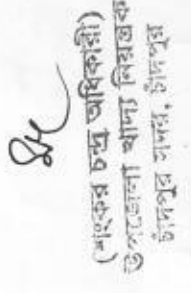 (শংকর চন্দ্র অধিকারী)
উপজেলা খাদ্য নিয়ন্ত্রক
চাঁদপুর সদর, চাঁদপুর